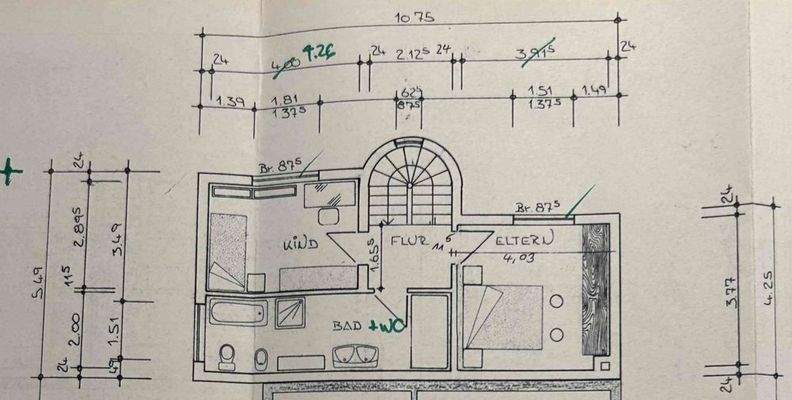 10.75
24 4.00 4.26 24 2.12⁵ 24 3.91⁵ 24
1.39 1.81 62⁵ 1.51 1.49
1.37⁵ 87⁵ 1.37⁵
Br. 87⁵
Br. 87⁵
24
2.89⁵
11⁵
2.00
24
5.49
3.49
1.51
49
KIND
FLUR
1.65⁵
11⁵
ELTERN
4,03
BAD + WC
24
3.77
24
4.25